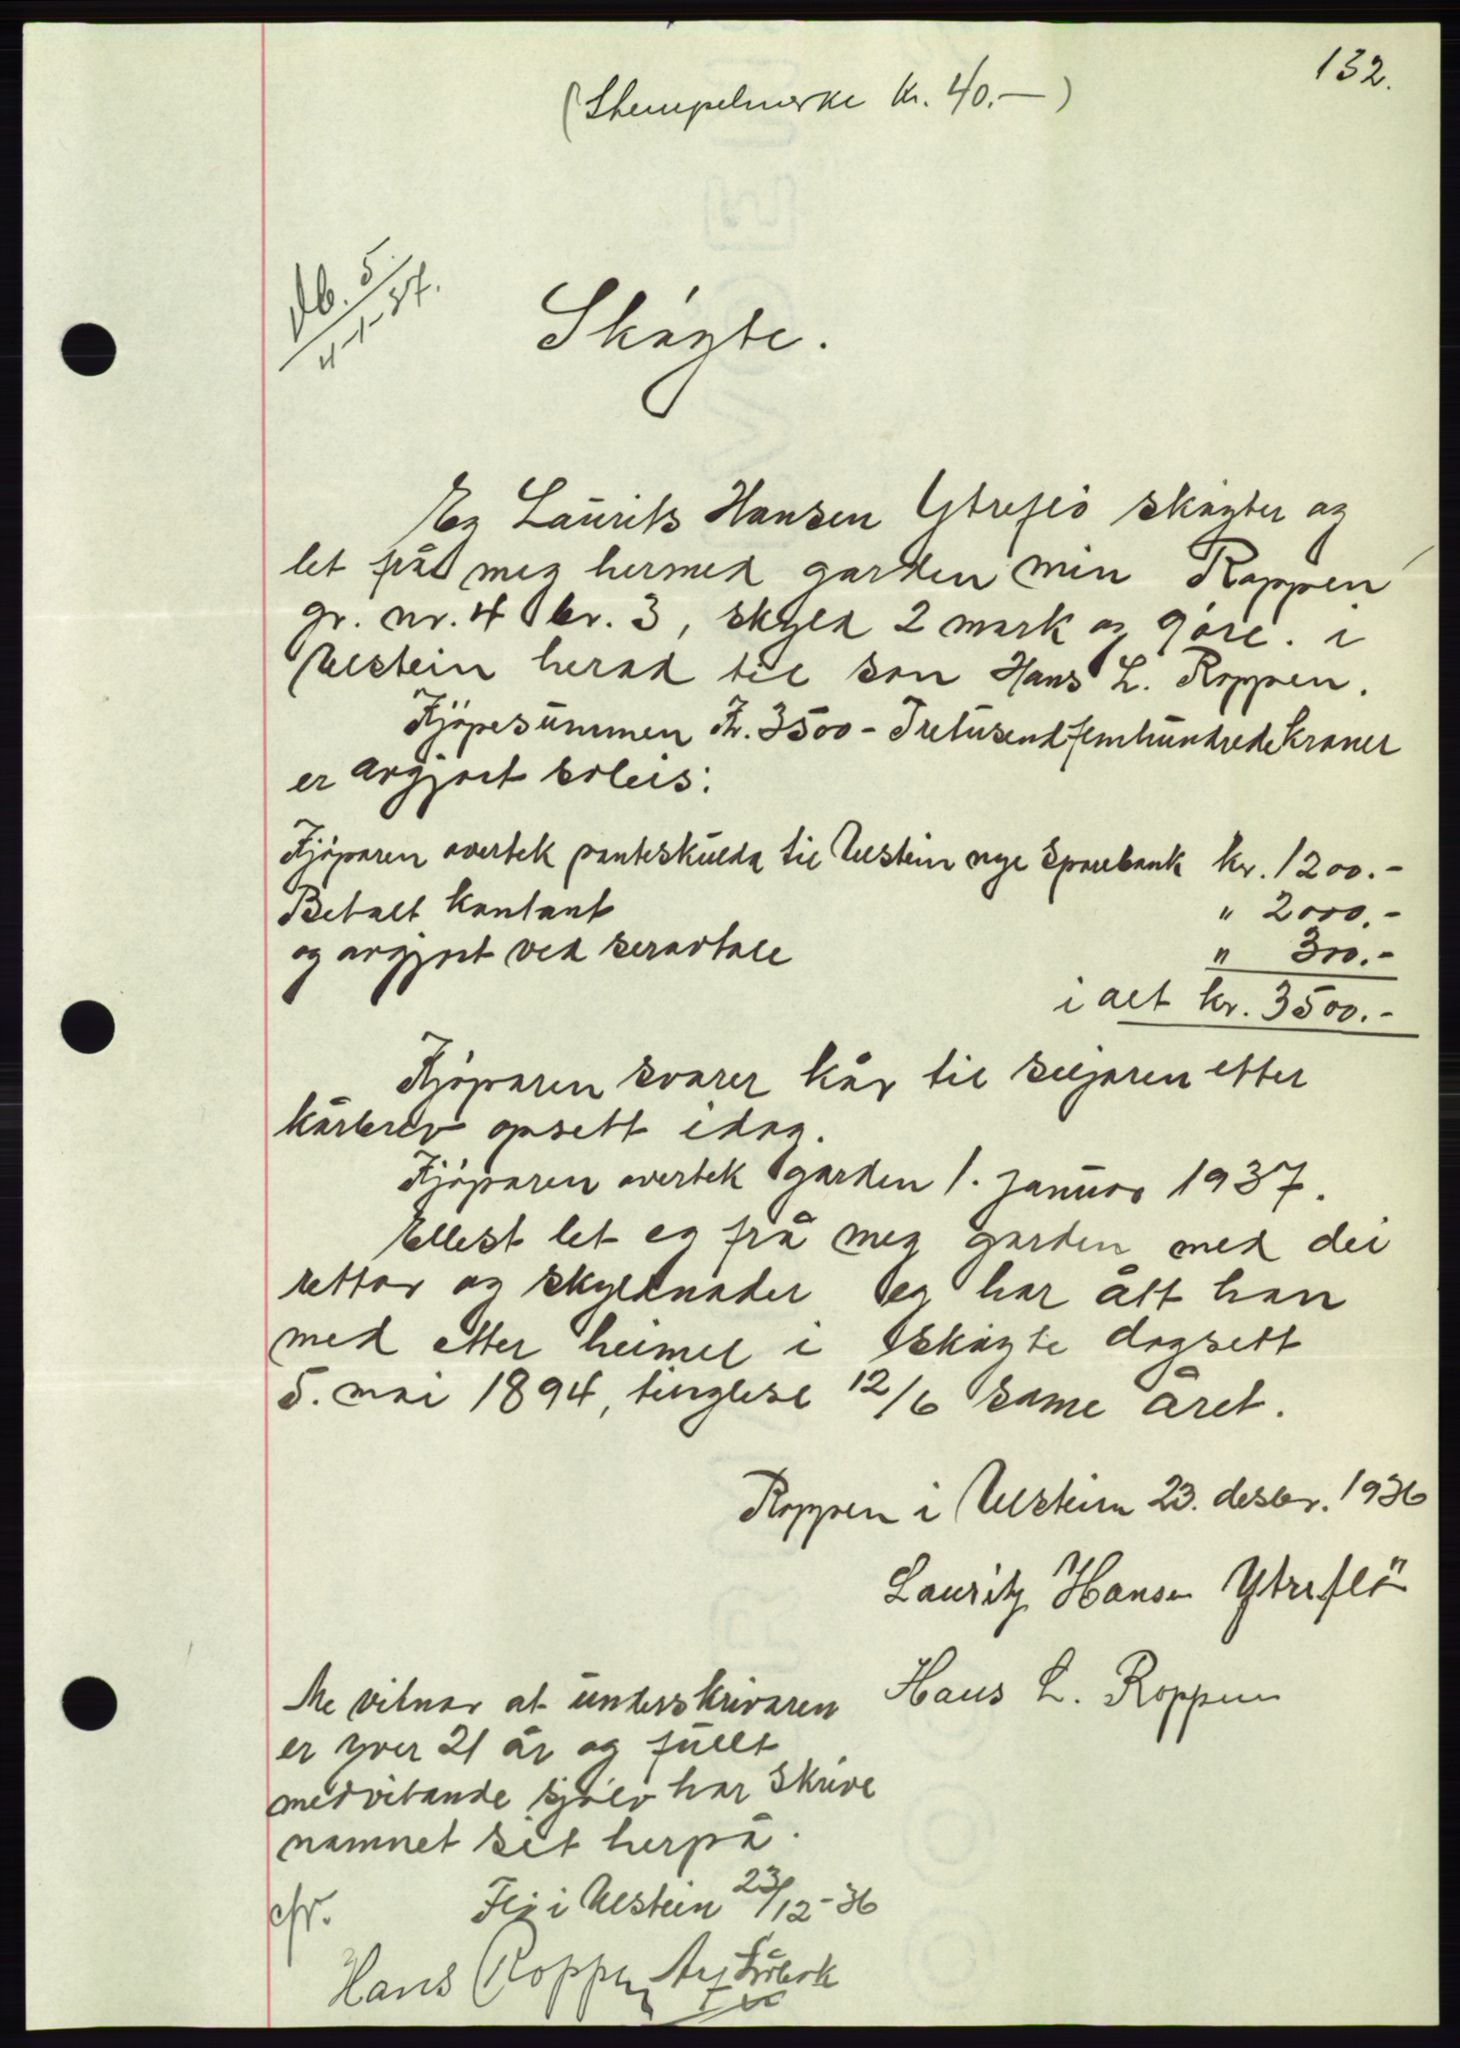 132.
(Stempelmerke kr. 40.—)
db. 5
4-1-37.
Skøyte.
Eg Laurits Hansen Ytreflø skøyter og
let frå meg hermed garden min Roppen
gr. nr. 4 br. 3, skyld 2 mark og 9 øre. i
Ulstein herad til son Hans L. Roppen.
Kjøpesummen Kr. 3500 - Tretusendfemhundredekroner
er avgjort soleis:
Kjøparen overtek panteskulda til Ulstein nye Sparebank kr. 1200.-
Betalt kontant " 2000.-
og avgjort ved seravtale " 300.-
i alt kr. 3500.-
Kjøparen svarer kår til seljaren etter
kårbrev opsett idag.
Kjøparen overtek garden 1. januar 1937.
Ellest let eg frå meg garden med dei
rettar og skyldnader eg har ått han
med etter heimel i skøyte dagsett
5. mai 1894, tinglese 12/6 same året.
Roppen i Ulstein 23. desbr. 1936
Lauritz Hansen Ytreflø
Hans L. Roppen
Me vitnar at underskrivaren
er yver 21 år og fullt
medvitande sjølv har skrive
namnet sit herpå.
Flø i Ulstein 23/12-36
cfr.
Hans Roppen